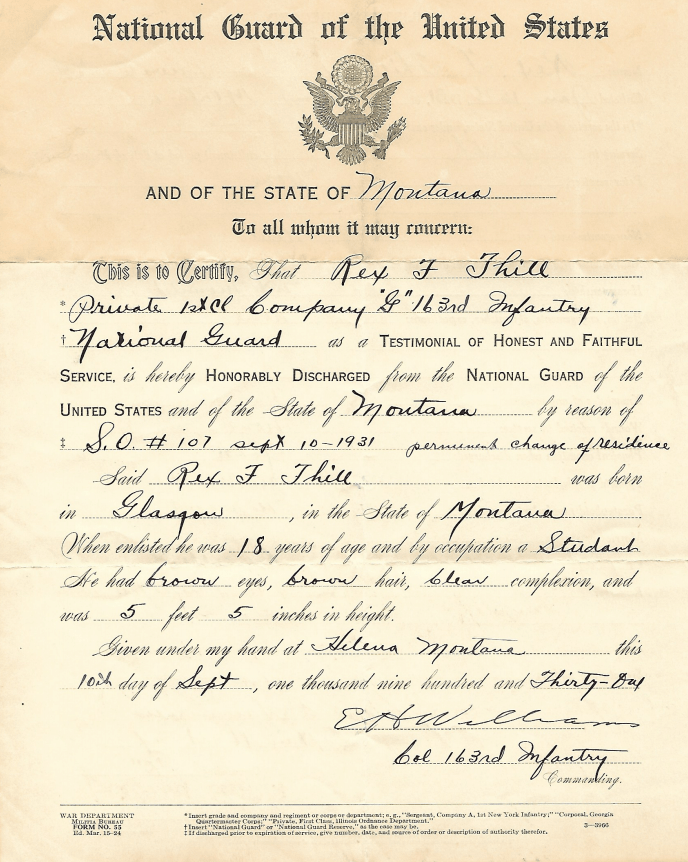 National Guard of the United States
AND OF THE STATE OF Montana
To all whom it may concern:
This is to Certify, That Rex F Thill
* Private 1st Cl Company "G" 163rd Infantry
† National Guard as a TESTIMONIAL OF HONEST AND FAITHFUL
SERVICE, is hereby HONORABLY DISCHARGED from the NATIONAL GUARD of the
UNITED STATES and of the State of Montana by reason of
‡ S.O. # 107 sept 10-1931 permenent change of residence
Said Rex F Thill was born
in Glasgow, in the State of Montana
When enlisted he was 18 years of age and by occupation a Studant
He had brown eyes, brown hair, Clear complexion, and
was 5 feet 5 inches in height.
Given under my hand at Helena Montana this
10th day of Sept, one thousand nine hundred and Thirty-One
E H Williams
Col 163rd Infantry
Commanding.
WAR DEPARTMENT
MILITIA BUREAU
FORM NO. 55
Ed. Mar. 15-24
* Insert grade and company and regiment or corps or department; e.g., "Sergeant, Company A, 1st New York Infantry;" "Corporal, Georgia
Quartermaster Corps;" "Private, First Class, Illinois Ordnance Department."
† Insert "National Guard" or "National Guard Reserve," as the case may be.
‡ If discharged prior to expiration of service, give number, date, and source of order or description of authority therefor.
3—3966